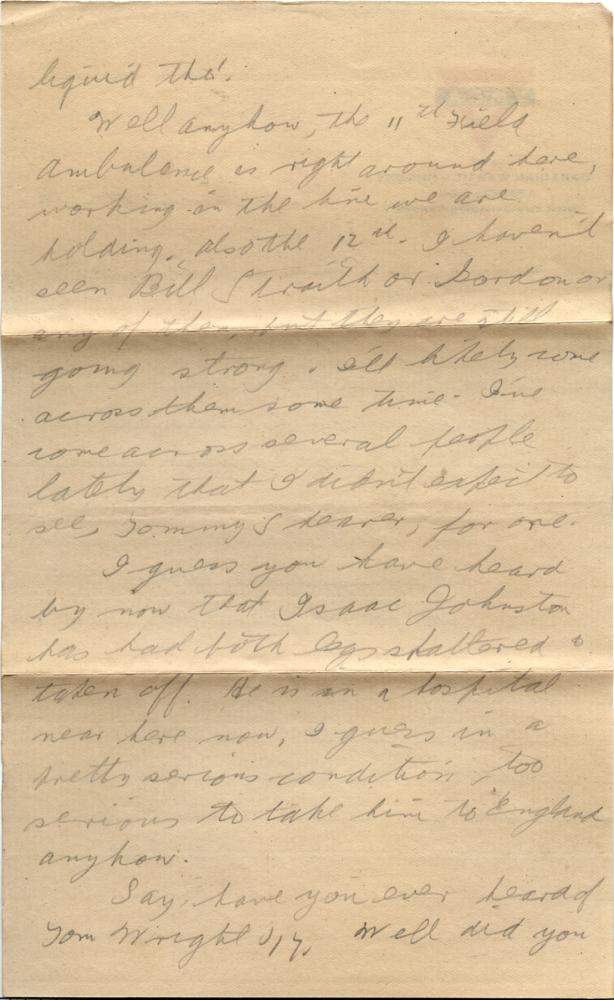 liquid tho'.
Well anyhow, the 11th Field
Ambulance is right around here,
working on the line we are
holding, also the 12th. I haven't
seen Bill Straith or Gordon or
any of them, but they are still
going strong. I'll likely come
across them some time. I've
come across several people
lately that I didn't expect to
see, Tommy Shearer, for one.
I guess you have heard
by now that Isaac Johnston
has had both legs shattered &
taken off. He is in a hospital
near here now, I guess in a
pretty serious condition, too
serious to take him to England
anyhow.
Say, have you ever heard of
Tom Wright '17. Well did you